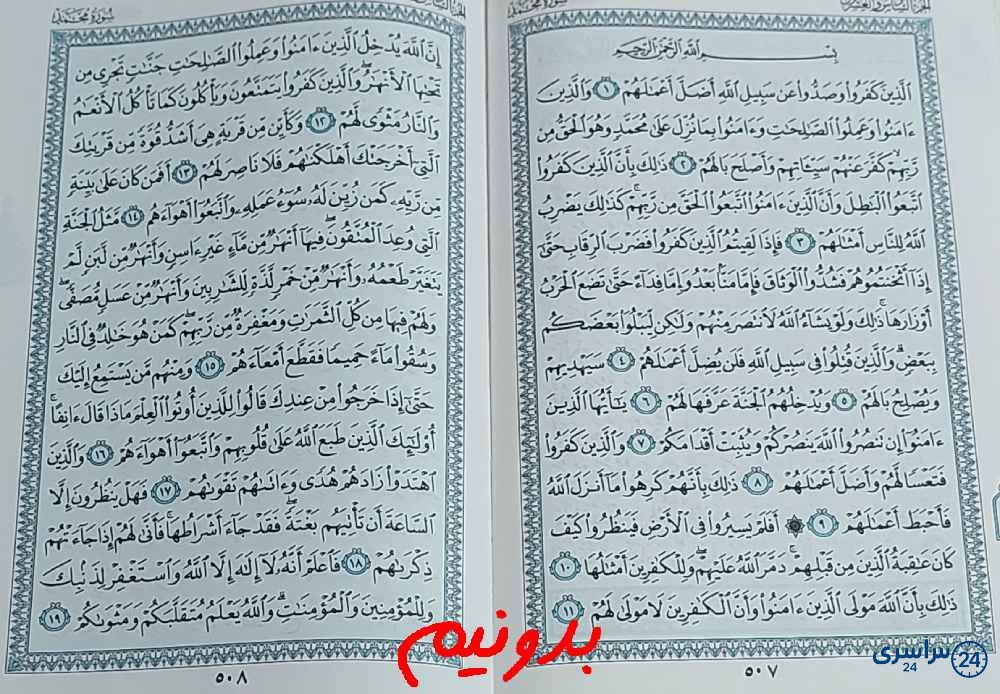 الجزء السادس والعشرون
سورة محمد
بِسْمِ ٱللَّهِ ٱلرَّحْمَٰنِ ٱلرَّحِيمِ
ٱلَّذِينَ كَفَرُوا۟ وَصَدُّوا۟ عَن سَبِيلِ ٱللَّهِ أَضَلَّ أَعْمَٰلَهُمْ ١ وَٱلَّذِينَ
ءَامَنُوا۟ وَعَمِلُوا۟ ٱلصَّٰلِحَٰتِ وَءَامَنُوا۟ بِمَا نُزِّلَ عَلَىٰ مُحَمَّدٍ وَهُوَ ٱلْحَقُّ مِن
رَّبِّهِمْ كَفَّرَ عَنْهُمْ سَيِّـَٔاتِهِمْ وَأَصْلَحَ بَالَهُمْ ٢ ذَٰلِكَ بِأَنَّ ٱلَّذِينَ كَفَرُوا۟
ٱتَّبَعُوا۟ ٱلْبَٰطِلَ وَأَنَّ ٱلَّذِينَ ءَامَنُوا۟ ٱتَّبَعُوا۟ ٱلْحَقَّ مِن رَّبِّهِمْ كَذَٰلِكَ يَضْرِبُ
ٱللَّهُ لِلنَّاسِ أَمْثَٰلَهُمْ ٣ فَإِذَا لَقِيتُمُ ٱلَّذِينَ كَفَرُوا۟ فَضَرْبَ ٱلرِّقَابِ حَتَّىٰٓ
إِذَآ أَثْخَنتُمُوهُمْ فَشُدُّوا۟ ٱلْوَثَاقَ فَإِمَّا مَنًّۢا بَعْدُ وَإِمَّا فِدَآءً حَتَّىٰ تَضَعَ ٱلْحَرْبُ
أَوْزَارَهَا ذَٰلِكَ وَلَوْ يَشَآءُ ٱللَّهُ لَٱنتَصَرَ مِنْهُمْ وَلَٰكِن لِّيَبْلُوَا۟ بَعْضَكُم
بِبَعْضٍ وَٱلَّذِينَ قُتِلُوا۟ فِى سَبِيلِ ٱللَّهِ فَلَن يُضِلَّ أَعْمَٰلَهُمْ ٤ سَيَهْدِيهِمْ
وَيُصْلِحُ بَالَهُمْ ٥ وَيُدْخِلُهُمُ ٱلْجَنَّةَ عَرَّفَهَا لَهُمْ ٦ يَٰٓأَيُّهَا ٱلَّذِينَ
ءَامَنُوٓا۟ إِن تَنصُرُوا۟ ٱللَّهَ يَنصُرْكُمْ وَيُثَبِّتْ أَقْدَامَكُمْ ٧ وَٱلَّذِينَ كَفَرُوا۟
فَتَعْسًا لَّهُمْ وَأَضَلَّ أَعْمَٰلَهُمْ ٨ ذَٰلِكَ بِأَنَّهُمْ كَرِهُوا۟ مَآ أَنزَلَ ٱللَّهُ
فَأَحْبَطَ أَعْمَٰلَهُمْ ٩ ۞ أَفَلَمْ يَسِيرُوا۟ فِى ٱلْأَرْضِ فَيَنظُرُوا۟ كَيْفَ
كَانَ عَٰقِبَةُ ٱلَّذِينَ مِن قَبْلِهِمْ دَمَّرَ ٱللَّهُ عَلَيْهِمْ وَلِلْكَٰفِرِينَ أَمْثَٰلُهَا ١٠
ذَٰلِكَ بِأَنَّ ٱللَّهَ مَوْلَى ٱلَّذِينَ ءَامَنُوا۟ وَأَنَّ ٱلْكَٰفِرِينَ لَا مَوْلَىٰ لَهُمْ ١١
٥٠٧
سورة محمد
إِنَّ ٱللَّهَ يُدْخِلُ ٱلَّذِينَ ءَامَنُوا۟ وَعَمِلُوا۟ ٱلصَّٰلِحَٰتِ جَنَّٰتٍ تَجْرِى مِن
تَحْتِهَا ٱلْأَنْهَٰرُ وَٱلَّذِينَ كَفَرُوا۟ يَتَمَتَّعُونَ وَيَأْكُلُونَ كَمَا تَأْكُلُ ٱلْأَنْعَٰمُ
وَٱلنَّارُ مَثْوًى لَّهُمْ ١٢ وَكَأَيِّن مِّن قَرْيَةٍ هِىَ أَشَدُّ قُوَّةً مِّن قَرْيَتِكَ
ٱلَّتِىٓ أَخْرَجَتْكَ أَهْلَكْنَٰهُمْ فَلَا نَاصِرَ لَهُمْ ١٣ أَفَمَن كَانَ عَلَىٰ بَيِّنَةٍ
مِّن رَّبِّهِۦ كَمَن زُيِّنَ لَهُۥ سُوٓءُ عَمَلِهِۦ وَٱتَّبَعُوٓا۟ أَهْوَآءَهُم ١٤ مَّثَلُ ٱلْجَنَّةِ
ٱلَّتِى وُعِدَ ٱلْمُتَّقُونَ فِيهَآ أَنْهَٰرٌ مِّن مَّآءٍ غَيْرِ ءَاسِنٍ وَأَنْهَٰرٌ مِّن لَّبَنٍ لَّمْ
يَتَغَيَّرْ طَعْمُهُۥ وَأَنْهَٰرٌ مِّنْ خَمْرٍ لَّذَّةٍ لِّلشَّٰرِبِينَ وَأَنْهَٰرٌ مِّنْ عَسَلٍ مُّصَفًّى
وَلَهُمْ فِيهَا مِن كُلِّ ٱلثَّمَرَٰتِ وَمَغْفِرَةٌ مِّن رَّبِّهِمْ كَمَنْ هُوَ خَٰلِدٌ فِى ٱلنَّارِ
وَسُقُوا۟ مَآءً حَمِيمًا فَقَطَّعَ أَمْعَآءَهُمْ ١٥ وَمِنْهُم مَّن يَسْتَمِعُ إِلَيْكَ
حَتَّىٰٓ إِذَا خَرَجُوا۟ مِنْ عِندِكَ قَالُوا۟ لِلَّذِينَ أُوتُوا۟ ٱلْعِلْمَ مَاذَا قَالَ ءَانِفًا
أُو۟لَٰٓئِكَ ٱلَّذِينَ طَبَعَ ٱللَّهُ عَلَىٰ قُلُوبِهِمْ وَٱتَّبَعُوٓا۟ أَهْوَآءَهُمْ ١٦ وَٱلَّذِينَ
ٱهْتَدَوْا۟ زَادَهُمْ هُدًى وَءَاتَىٰهُمْ تَقْوَىٰهُمْ ١٧ فَهَلْ يَنظُرُونَ إِلَّا
ٱلسَّاعَةَ أَن تَأْتِيَهُم بَغْتَةً فَقَدْ جَآءَ أَشْرَاطُهَا فَأَنَّىٰ لَهُمْ إِذَا جَآءَتْهُمْ
ذِكْرَىٰهُمْ ١٨ فَٱعْلَمْ أَنَّهُۥ لَآ إِلَٰهَ إِلَّا ٱللَّهُ وَٱسْتَغْفِرْ لِذَنۢبِكَ
وَلِلْمُؤْمِنِينَ وَٱلْمُؤْمِنَٰتِ وَٱللَّهُ يَعْلَمُ مُتَقَلَّبَكُمْ وَمَثْوَىٰكُمْ ١٩
٥٠٨
بدونیم
سراسری 24
24